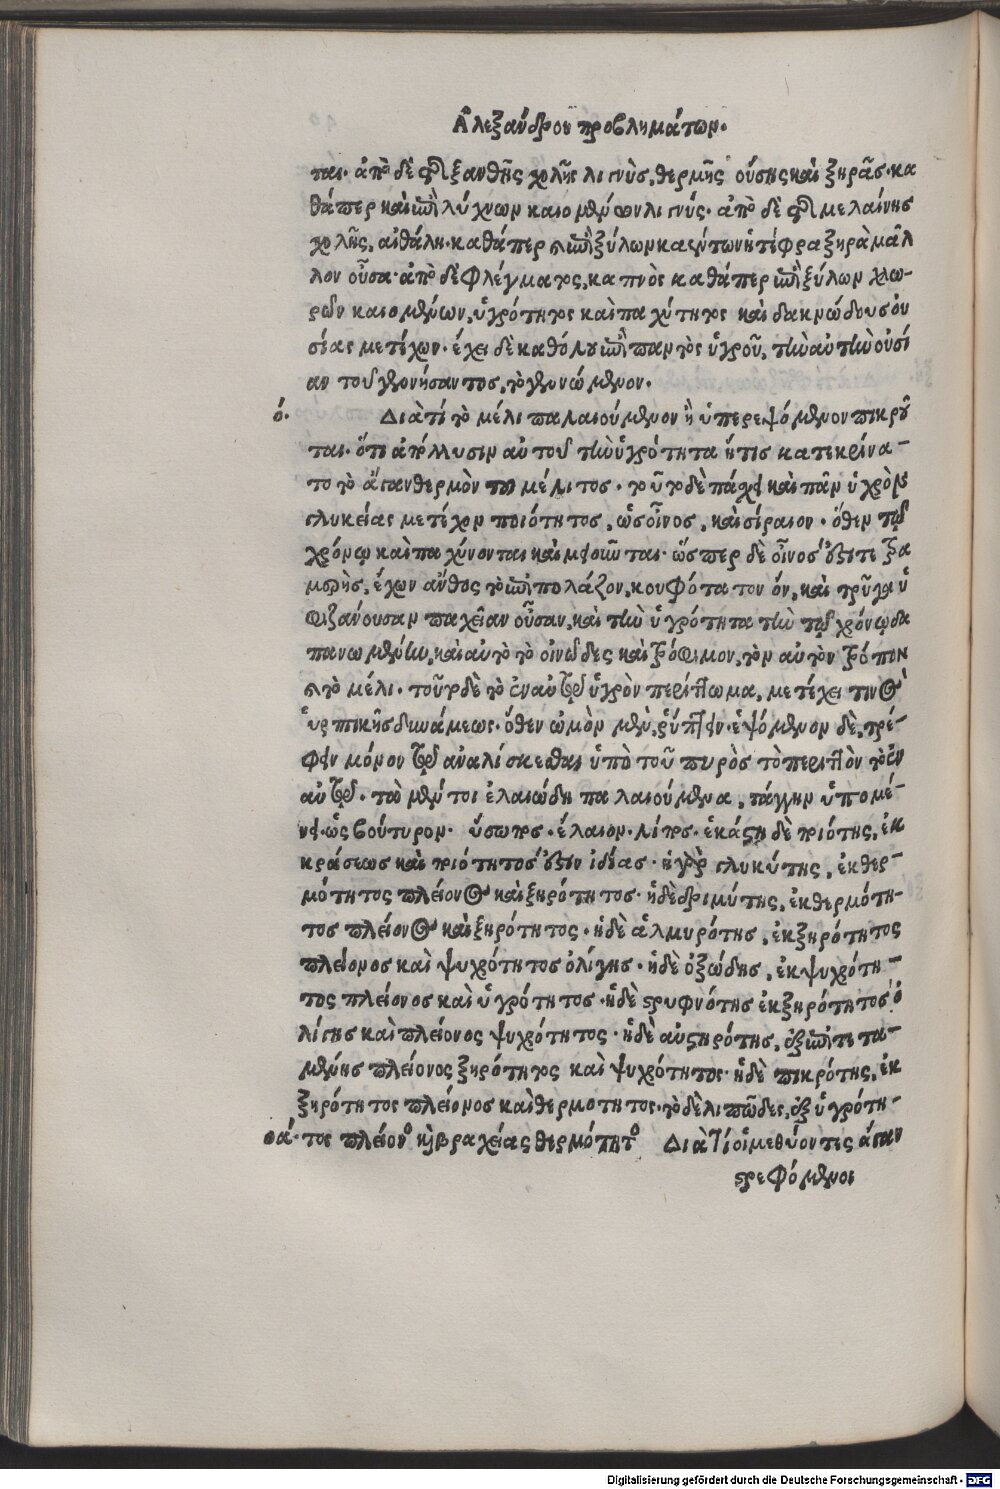 Ἀλεξάνδρου προβλημάτων.
ται. ἀπὸ δὲ τῆς ξανθῆς χολῆς λιγνὺς, θερμῆς οὔσης καὶ ξηρᾶς. κα
θάπερ καὶ ἐπὶ λύχνων καιομένων λιγνύς. ἀπὸ δὲ τῆς μελαίνης
χολῆς, αἰθάλη. καθάπερ ἡ ἐπὶ ξύλων καέντων ἡ τέφρα ξηρὰ μᾶλ
λον οὖσα. ἀπὸ δὲ φλέγματος, καπνὸς καθάπερ ἐπὶ ξύλων χλω-
ρῶν καιομένων, ὑγρότητος καὶ παχύτητος καὶ δακνώδους οὐ
σίας μετέχων. ἔχει δὲ καθόλου ἐπὶ παντὸς ὑγροῦ, τὴν αὐτὴν οὐσί
αν τοῦ γεννήσαντος, τὸ γεννώμενον.
ό. Διὰ τί τὸ μέλι παλαιούμενον ἢ ὑπερεψόμενον πικροῦ
ται. ὅτι ἀπόλλυσιν αὐτοῦ τὴν ὑγρότητα ἥτις κατεκρίνα-
το τὸ ἄγαν θερμὸν τοῦ μέλιτος. τοῦτο δὲ πάσχει καὶ πᾶν ὑγρὸν
γλυκείας μετέχον ποιότητος, ὡς οἶνος, καὶ σίραιον. ὅθεν τῷ
χρόνῳ καὶ παχύνονται καὶ μειοῦνται. ὥσπερ δὲ οἶνος ἐστὶ τρι
μερὴς, ἔχων ἄνθος τὸ ἐπιπολάζον, κουφότατον ὂν, καὶ τρύγα ὑ
φιζάνουσαν παχεῖαν οὖσαν, καὶ τὴν ὑγρότητα τὴν τῷ χρόνῳ δα
πανωμένην, καὶ αὐτὸ τὸ οἰνῶδες καὶ τρόφιμον, τὸν αὐτὸν τρόπον
ἡ τὸ μέλι. τοῦτο δὲ τὸ ἐν αὐτῷ ὑγρὸν περίττωμα, μετέχει τινὸς
ῥυπτικῆς δυνάμεως. ὅθεν ὠμὸν μὲν, ῥύπτειν. ἑψόμενον δὲ, τρέ-
φειν μόνον τῷ ἀναλίσκεσθαι ὑπὸ τοῦ πυρὸς τὸ περιττὸν τὸ ἐν
αὐτῷ. τὰ μέντοι ἐλαιώδη παλαιούμενα, τάγγην ὑπομέ-
νει. ὡς βούτυρον. ὕσωπος. ἔλαιον. λίπος. ἑκάστη δὲ ποιότης, ἐκ
κράσεως καὶ ποιότητός ἐστιν ἰδίας. ἡ γὰρ γλυκύτης, ἐκ θερ-
μότητος πλείονος καὶ ξηρότητος. ἡ δὲ δριμύτης, ἐκ θερμότη-
τος πλείονος καὶ ξηρότητος. ἡ δὲ ἁλμυρότης, ἐκ ξηρότητος
πλείονος καὶ ψυχρότητος ὀλίγης. ἡ δὲ ὀξώδης, ἐκ ψυχρότη-
τος πλείονος καὶ ὑγρότητος. ἡ δὲ στρυφνότης ἐκ ξηρότητος ὀ
λίγης καὶ πλείονος ψυχρότητος. ἡ δὲ αὐστηρότης, ἐξ ἐπιτετα-
μένης πλείονος ξηρότητος καὶ ψυχρότητος. ἡ δὲ πικρότης, ἐκ
ξηρότητος πλείονος καὶ θερμότητος. τὸ δὲ λιπῶδες, ἐξ ὑγρότη-
οά. τος πλείονος καὶ βραχείας θερμότητος Διὰ τί οἱ μεθύοντες ἄγαν
στρεφόμενοι
Digitalisierung gefördert durch die Deutsche Forschungsgemeinschaft - DFG